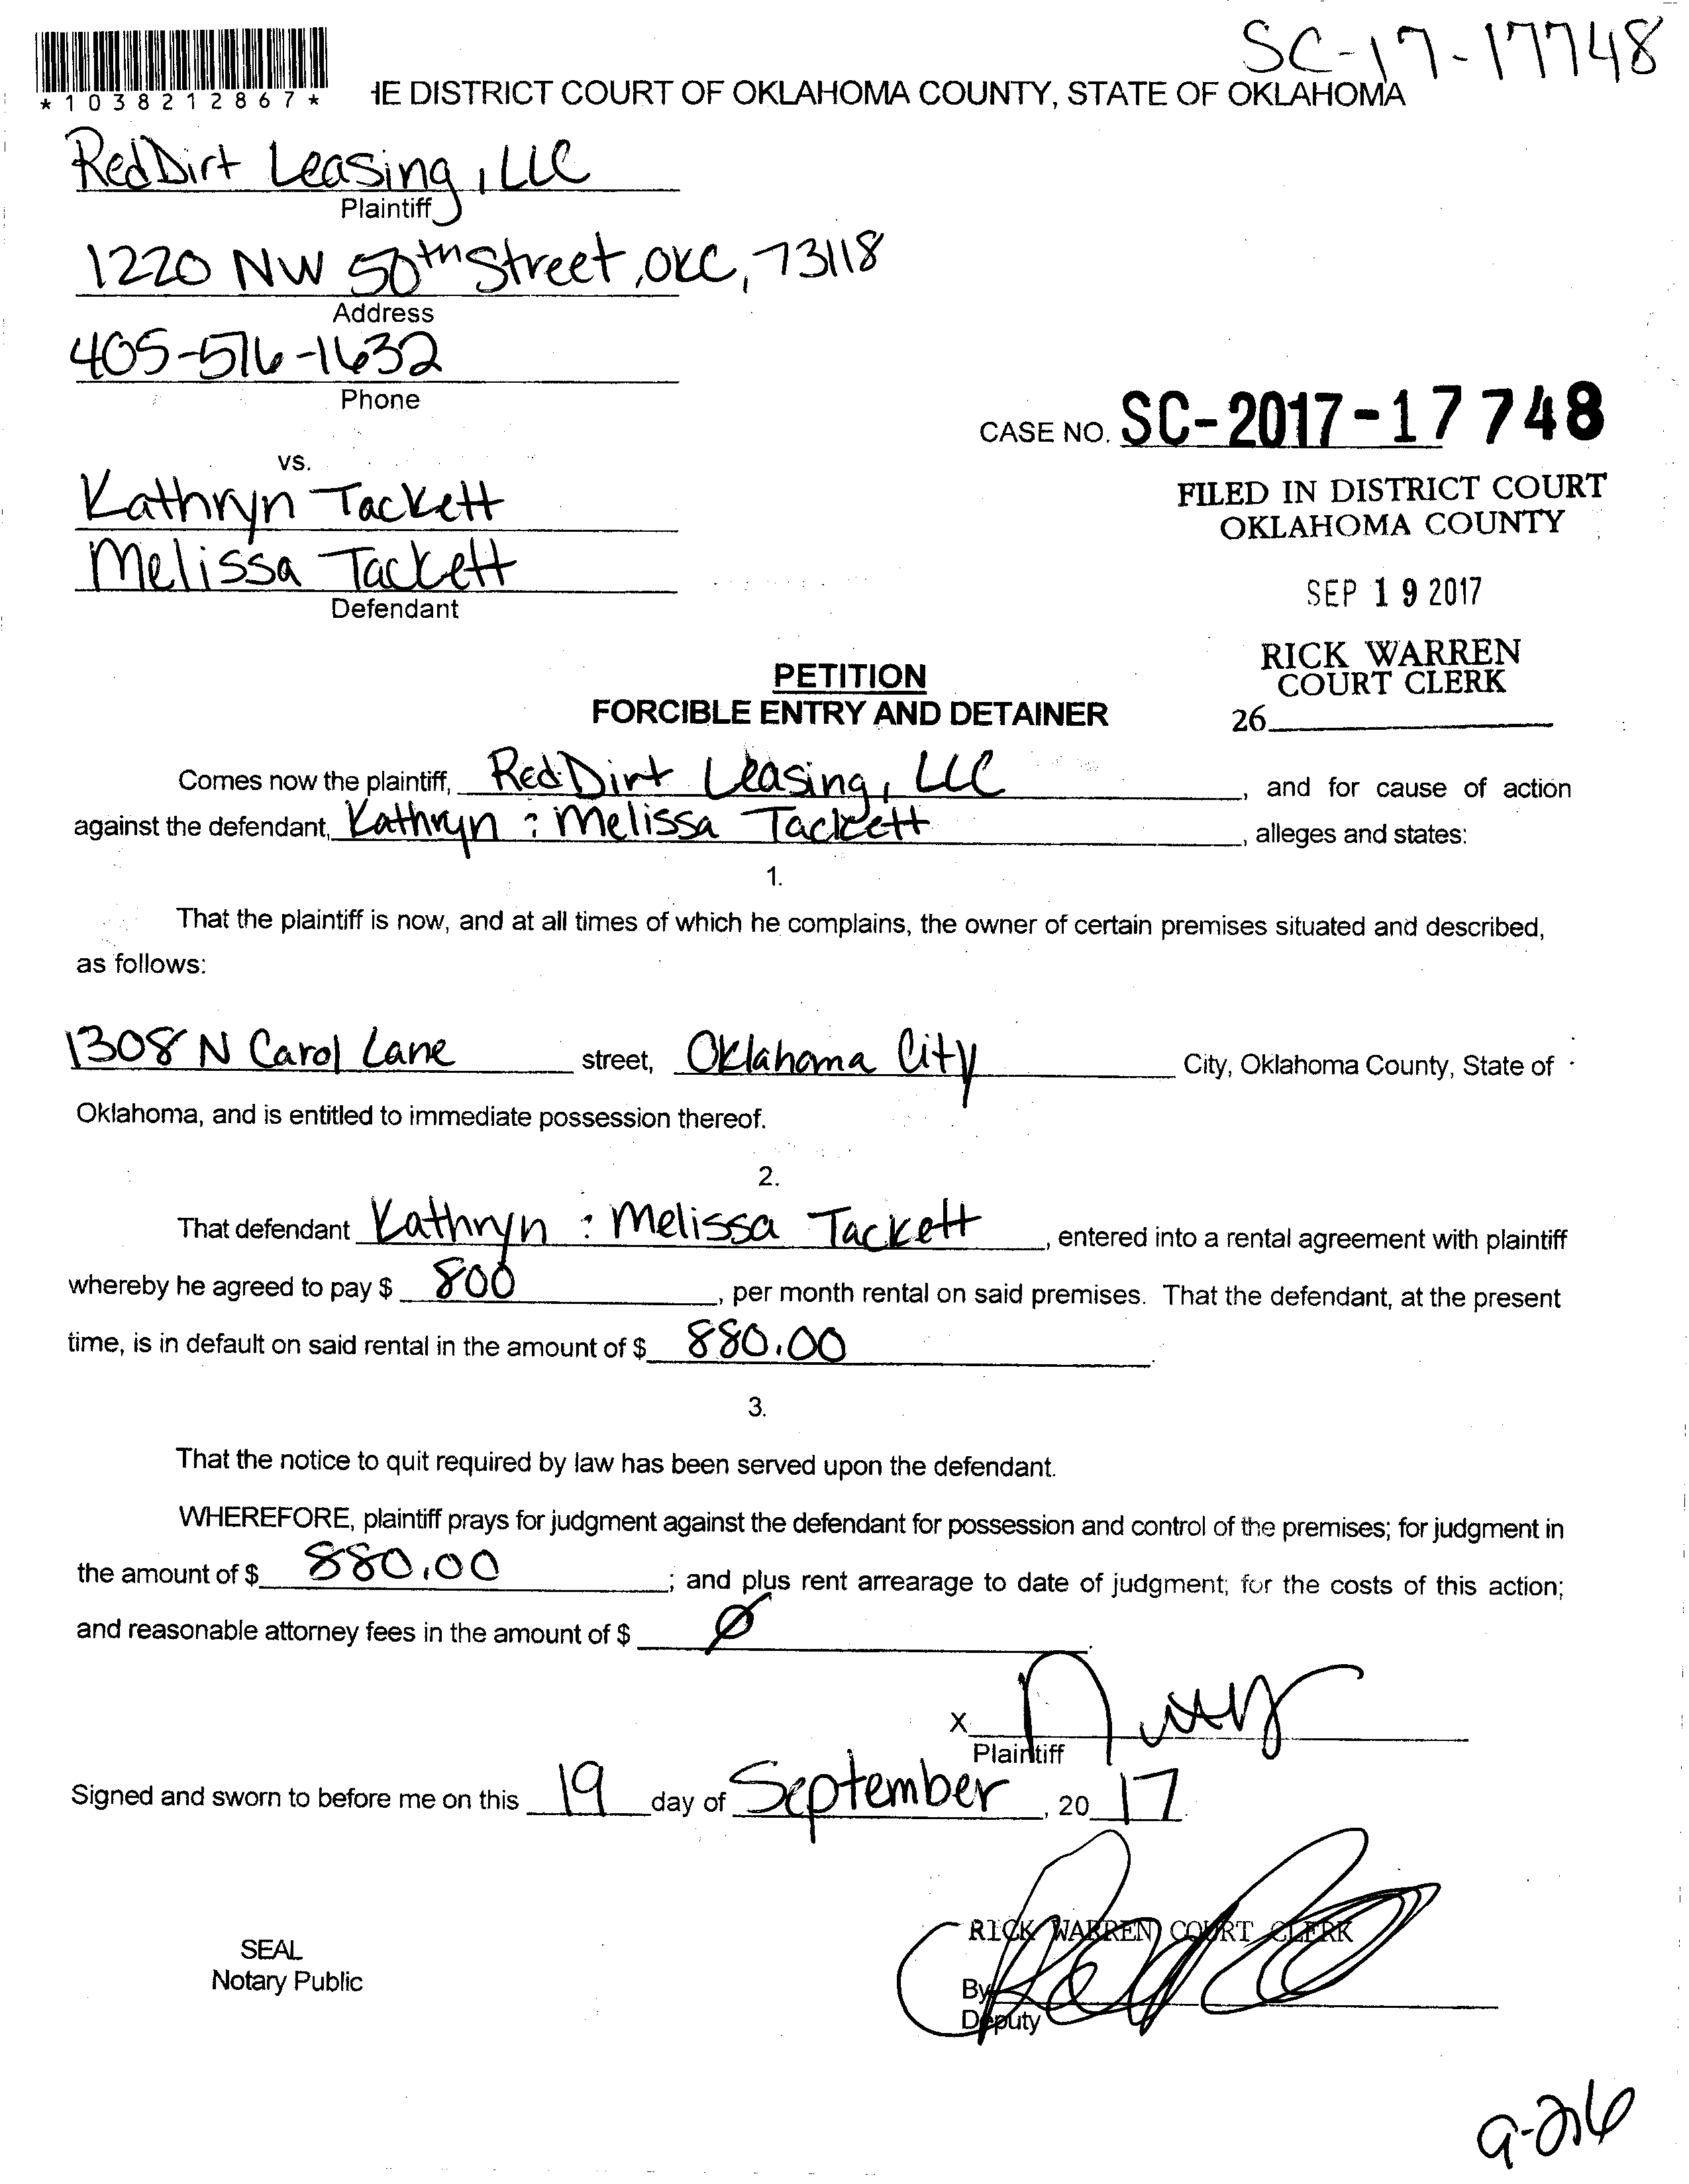 SC-17-17748
*1038212867*
HE DISTRICT COURT OF OKLAHOMA COUNTY, STATE OF OKLAHOMA
RedDirt Leasing, LLC
Plaintiff
1220 NW 50th Street, OKC, 73118
Address
405-516-1632
Phone
CASE NO. SC-2017-17748
vs.
Kathryn Tackett
FILED IN DISTRICT COURT
OKLAHOMA COUNTY
Melissa Tackett
Defendant
SEP 19 2017
RICK WARREN
COURT CLERK
26
PETITION
FORCIBLE ENTRY AND DETAINER
Comes now the plaintiff, RedDirt Leasing, LLC, and for cause of action
against the defendant, Kathryn & Melissa Tackett, alleges and states:
1.
That the plaintiff is now, and at all times of which he complains, the owner of certain premises situated and described,
as follows:
1308 N Carol Lane street, Oklahoma City City, Oklahoma County, State of
Oklahoma, and is entitled to immediate possession thereof.
2.
That defendant Kathryn & Melissa Tackett, entered into a rental agreement with plaintiff
whereby he agreed to pay $ 800, per month rental on said premises. That the defendant, at the present
time, is in default on said rental in the amount of $ 880.00.
3.
That the notice to quit required by law has been served upon the defendant.
WHEREFORE, plaintiff prays for judgment against the defendant for possession and control of the premises; for judgment in
the amount of $ 880.00; and plus rent arrearage to date of judgment; for the costs of this action;
and reasonable attorney fees in the amount of $ Ø.
X
Plaintiff
Signed and sworn to before me on this 19 day of September, 2017.
RICK WARREN COURT CLERK
SEAL
Notary Public
By
Deputy
9-26